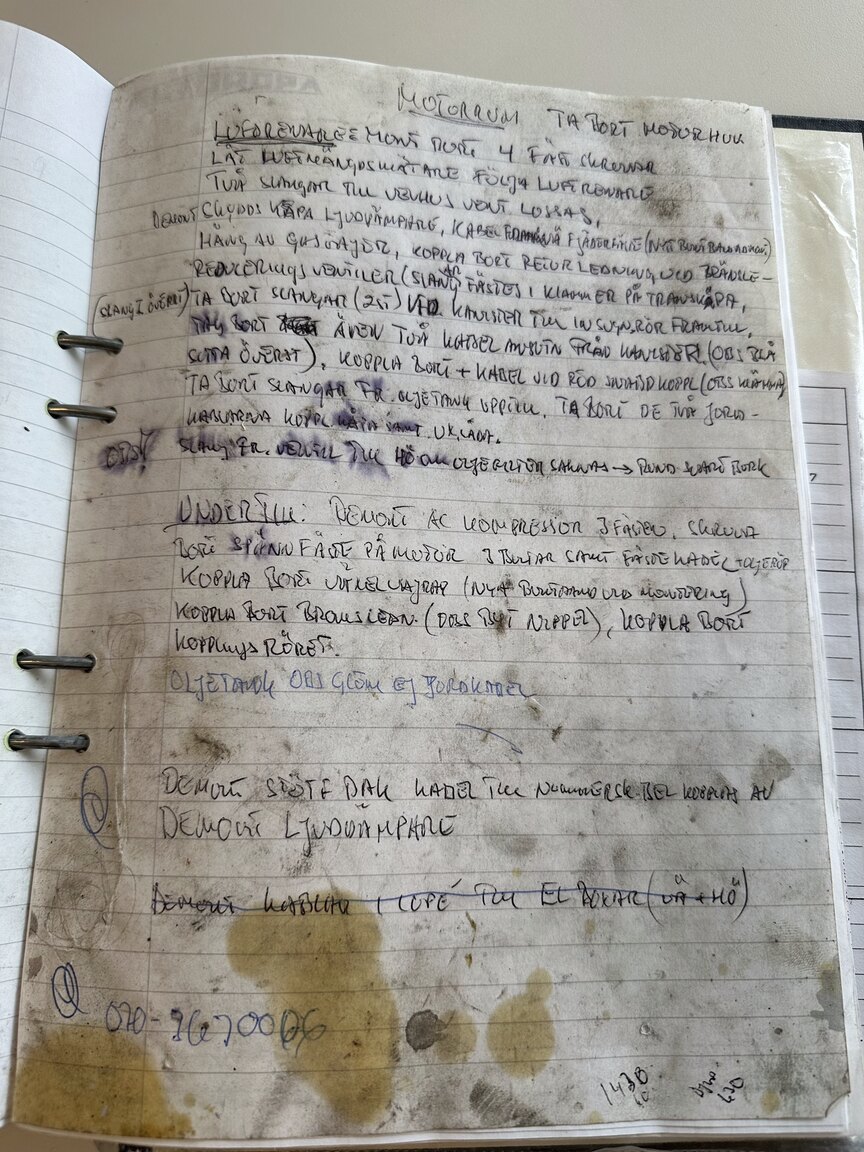 MOTORRUM TA BORT MOTORHUV
LUFTRENARE DEMONT BORT 4 FÄST SKRUVAR
LÅT LUFTMÄNGDSMÄTARE FÖLJA LUFTRENARE
TVÅ SLANGAR TILL VENTIL LOSSAS,
DEMONT SKYDDS KÅPA LJUDDÄMPARE, KABEL FJÄDERFÄSTE
HÄNG AV GASVAJER, KOPPLA BORT RETUR LEDNING VID BRÄNSLE-
REDUCERINGS VENTILER (SLANG FÄSTES I KLAMMER PÅ TRANSKÅPA,
(SLANG I ÖVERST) TA BORT SLANGAR (2ST) VID KANISTER TILL INSUGNSRÖR FRAMTILL,
TAG BORT ÄVEN TVÅ KABEL FRÅN KANISTER (OBS BLÅ
SITTA ÖVERST), KOPPLA BORT + KABEL VID RÖD KOPPL (OBS KLÄMMA)
TA BORT SLANGAR FR. OLJETANK UPPTILL. TA BORT DE TVÅ JORD-
KABLARNA KOPPL SAMT
OBS! SLANG FR. VENTIL TILL HÖ OM OLJEFILTER SAKNAS → RUND SVART BURK
UNDERTILL: DEMONT AC KOMPRESSOR 3 FÄSTEN, SKRUVA
BORT SPÄNN FÄSTE PÅ MOTOR 3 BULTAR SAMT FÄSTE KABEL + OLJERÖR
KOPPLA BORT VÄXELVAJRAR (NYA BUNTBAND VID MONTERING)
KOPPLA BORT BROMSLEDN. (OBS BYT NIPPEL), KOPPLA BORT
KOPPLINGS RÖRET.
OLJETANK OBS GLÖM EJ JORDKABEL
DEMONT STÖTF BAK KABEL TILL NUMMERSK. BEL KOPPLAS AV
DEMONT LJUDDÄMPARE
DEMONT KABLAR I COPÉ TILL EL BOXAR (VÄ + HÖ)
1430